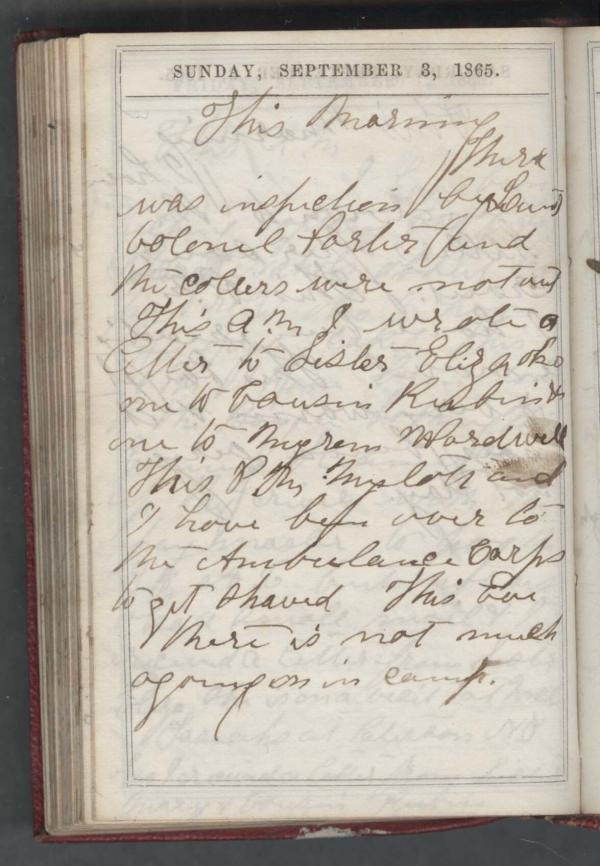 SUNDAY, SEPTEMBER 3, 1865.
This Morning
There
was inspection by Leut
Colonel Porter and
the collers were not out
This A M I wrote a
letter to Sister Eliza also
one to Cousin Rubin &
one to Wardwell
This P M and
I have ben over to
the Ambulance Corps
to get Shaved This Eve
there is not much
agoing on in camp.